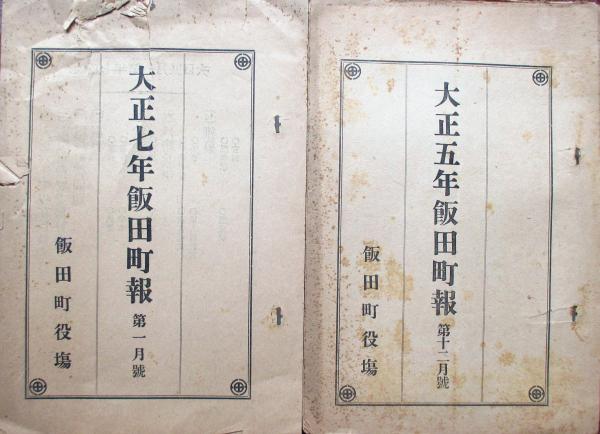 大正五年飯田町報 第十二月號
飯田町役塲
大正七年飯田町報 第一月號
飯田町役塲